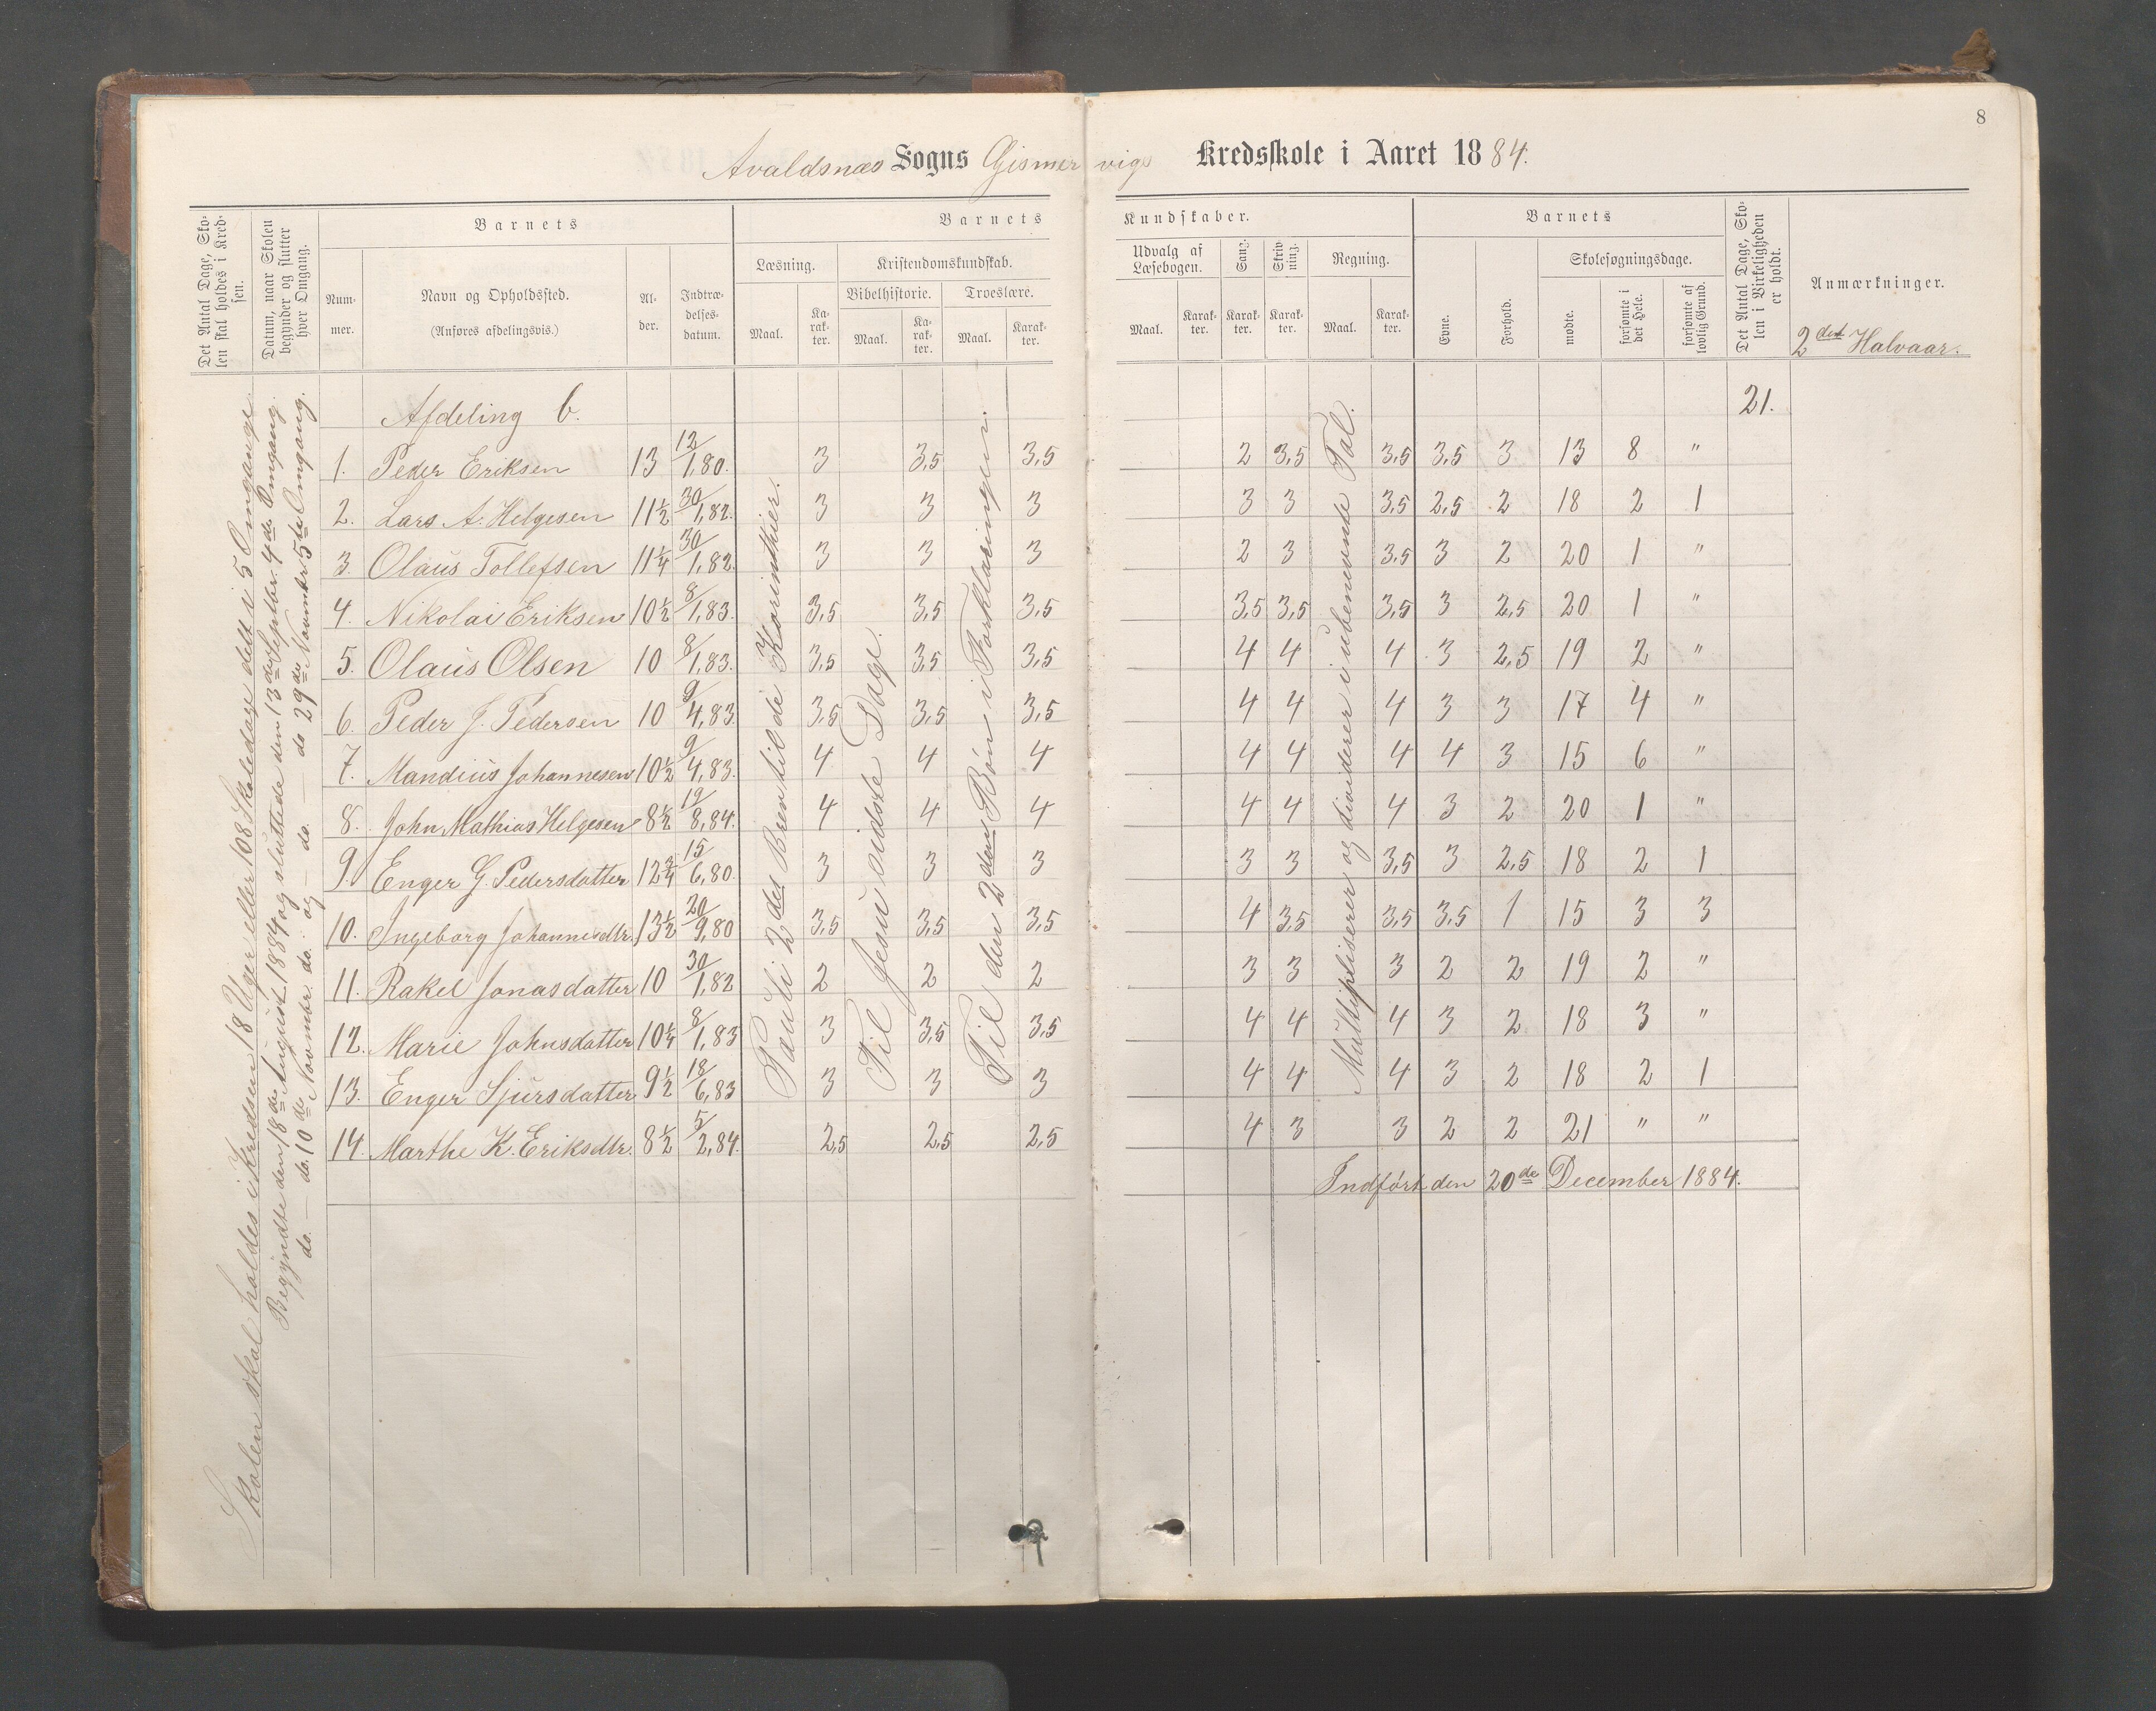 8
Avaldsnæs Sogns Gismervigs Kredsskole i Aaret 1884.
Det Antal Dage, Skolen skal holdes i Kredsen.
Datum, naar Skolen begynder og slutter hver Omgang.
Barnets
Nummer.
Navn og Opholdssted.
(Anføres afdelingsvis.)
Alder.
Indtrædelsesdatum.
Barnets Kundskaber.
Læsning.
Maal. Karakter.
Kristendomskundskab.
Bibelhistorie. Troeslære.
Maal. Karakter. Maal. Karakter.
Udvalg af Læsebogen.
Maal. Karakter.
Sang. Karakter.
Skrivning. Karakter.
Regning.
Maal. Karakter.
Barnets
Evne. Forhold.
Skolesøgningsdage.
mødte. forsømte i det Hele. forsømte af lovlig Grund.
Det Antal Dage, Skolen i Virkeligheden er holdt.
Anmærkninger.
2det Halvaar.
Skolen skal holdes i Kredsen 18 Uger eller 108 Skoledage delt i 5 Omgange.
Begyndte den 18de August 1884 og sluttede den 13de Septbr. 4de Omgang.
do. — do. 10de Novembr. do. og — do. — do 29de November 5te Omgang.
Afdeling b. 21.
1. Peder Eriksen 13 12/1,80. 3 3,5 3,5 2 3,5 3,5 3,5 3 13 8 "
2. Lars A. Helgesen 11½ 30/1,82. 3 3 3 3 3 3,5 2,5 2 18 2 1
3. Olaus Tollefsen 11¼ 30/1,82. 3 3 3 2 3 3,5 3 2 20 1 "
4. Nikolai Eriksen 10½ 8/1,83. 3,5 3,5 3,5 3,5 3,5 3,5 3 2,5 20 1 "
5. Olaus Olsen 10 8/1,83. 3,5 3,5 3,5 4 4 4 3 2,5 19 2 "
6. Peder J. Pedersen 10 9/4,83. 3,5 3,5 3,5 4 4 4 3 3 17 4 "
7. Mandius Johannesen 10½ 9/4,83. 4 4 4 4 4 4 4 3 15 6 "
8. John Mathias Helgesen 8½ 19/8,84. 4 4 4 4 4 4 3 2 20 1 "
9. Enger G. Pedersdatter 12¾ 15/6,80. 3 3 3 3 3 3,5 3 2,5 18 2 1
10. Ingeborg Johannesdtr. 13½ 20/9,80 3,5 3,5 3,5 4 3,5 3,5 3,5 1 15 3 3
11. Rakel Jonasdatter 10 30/1,82 2 2 2 3 3 3 2 2 19 2 "
12. Marie Johnsdatter 10¼ 8/1,83 3 3,5 3,5 4 4 4 3 2 18 3 "
13. Enger Sjursdatter 9½ 18/6,83 3 3 3 4 4 4 3 2 18 2 1
14. Marthe K. Eriksdtr. 8½ 5/2,84. 2,5 2,5 2,5 4 3 3 2 2 21 " "
Pauli 2det Brev til de Korinthier.
Til Jesu sidste Dage.
Til den 2den Bøn i Forklaringen.
Multipliserer og dividerer i ubenævnte Tal.
Indført den 20de December 1884.